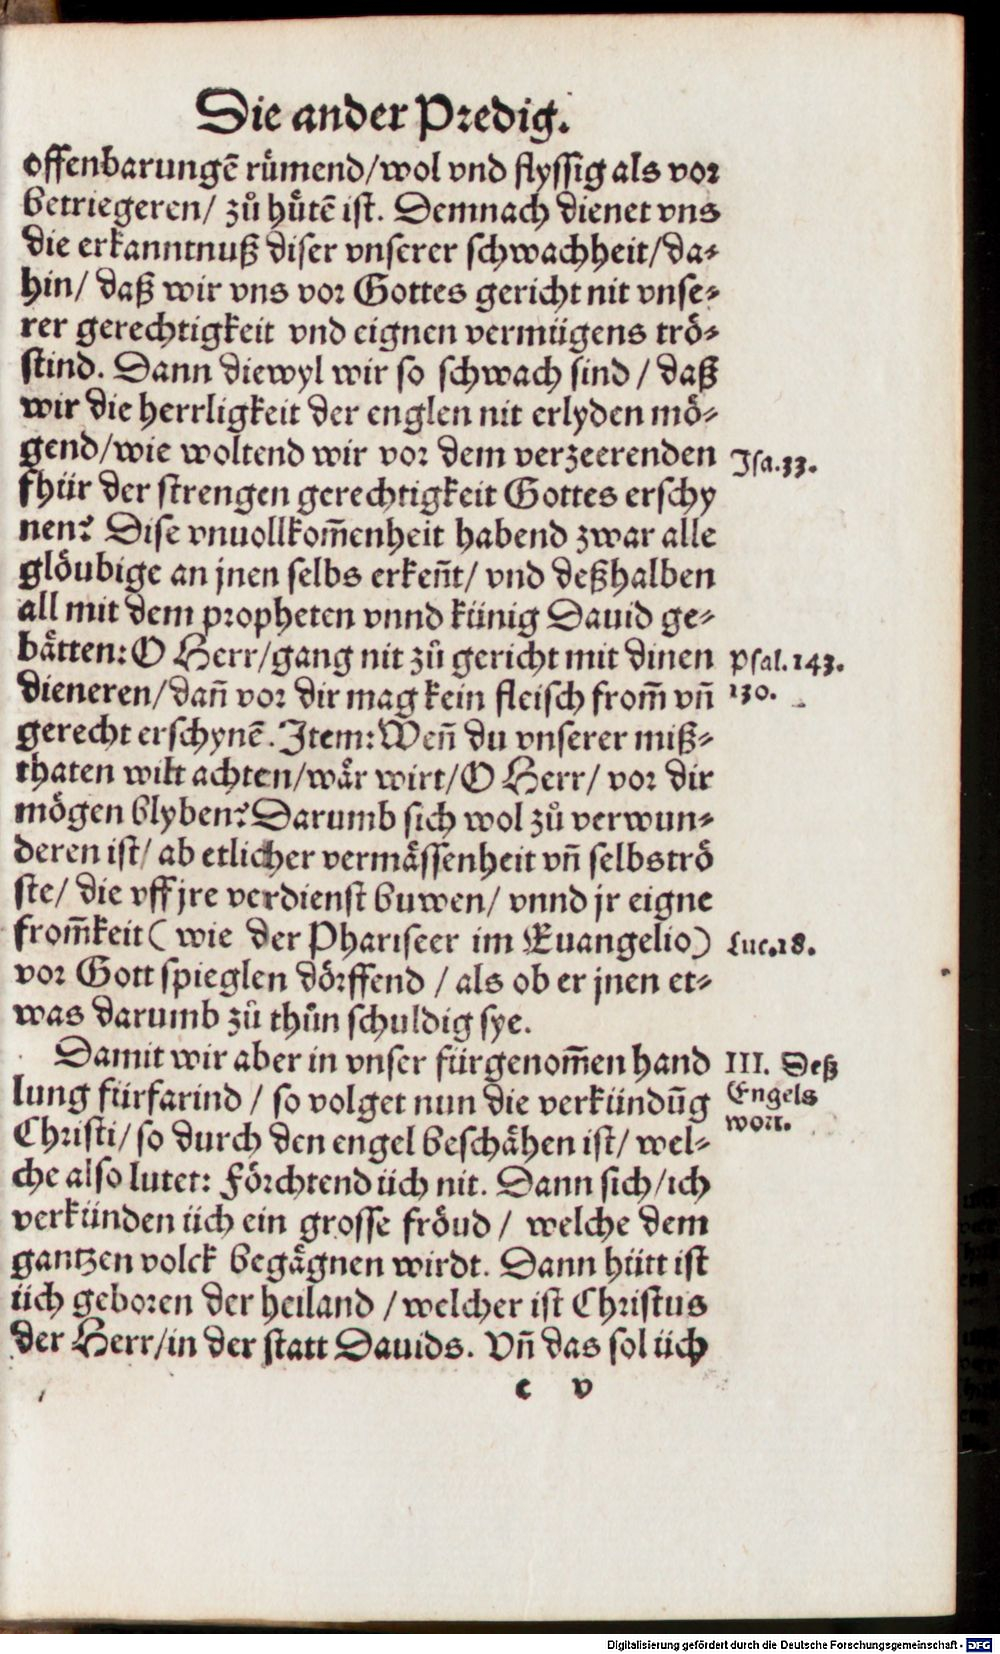 Die ander Predig.
offenbarungẽ rümend/wol vnd flyssig als vor
betriegeren/ zů hütẽ ist. Demnach dienet vns
die erkanntnuß diser vnserer schwachheit/da-
hin/ daß wir vns vor Gottes gericht nit vnse-
rer gerechtigkeit vnd eignen vermügens trö-
stind. Dann diewyl wir so schwach sind / daß
wir die herrligkeit der englen nit erlyden mö-
gend/wie woltend wir vor dem verzeerenden
Isa.33.
fhür der strengen gerechtigkeit Gottes erschy
nen? Dise vnuollkom̃enheit habend zwar alle
glöubige an jnen selbs erkeñt/ vnd deßhalben
all mit dem propheten vnnd künig Dauid ge-
bätten: O Herr/gang nit zů gericht mit dinen
Psal.143.
dieneren/dañ vor dir mag kein fleisch from̃ vñ
130.
gerecht erschynẽ. Item: Weñ du vnserer miß-
thaten wilt achten/wär wirt/O Herr/ vor dir
mögen blyben? Darumb sich wol zů verwun-
deren ist/ ab etlicher vermässenheit vñ selbströ
ste/ die vff jre verdienst buwen/ vnnd jr eigne
from̃keit ( wie der Phariseer im Euangelio)
Luc.18.
vor Gott spieglen dörffend / als ob er jnen et-
was darumb zů thůn schuldig sye.
Damit wir aber in vnser fürgenom̃en hand
III. Deß
lung fürfarind / so volget nun die verkündũg
Engels
Christi/ so durch den engel beschähen ist/ wel-
wort.
che also lutet: Förchtend üch nit. Dann sich/ich
verkünden üch ein grosse fröud / welche dem
gantzen volck begägnen wirdt. Dann hütt ist
üch geboren der heiland / welcher ist Christus
der Herr/in der statt Dauids. Vñ das sol üch
c v
Digitalisierung gefördert durch die Deutsche Forschungsgemeinschaft - DFG